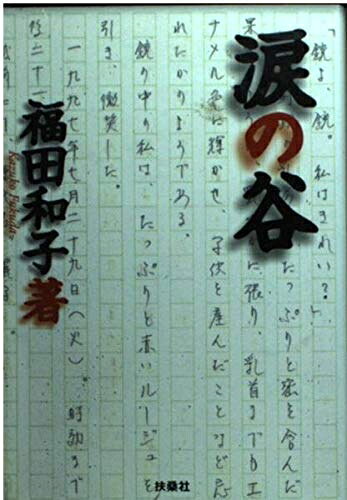 涙の谷
福田和子 著
Kazuko Fukuda
「鏡よ、鏡。私はきれい?」
たっぷりと蜜を含んだ
果
に張り、乳首までもエ
ナメル色に輝かせ、子供を産んだことなど忘
れたかのようである。
鏡の中の私は、たっぷりと赤いルージュを
引き、微笑した。
一九九七年七月二十九日(火)。時効まで
二十一
扶桑社